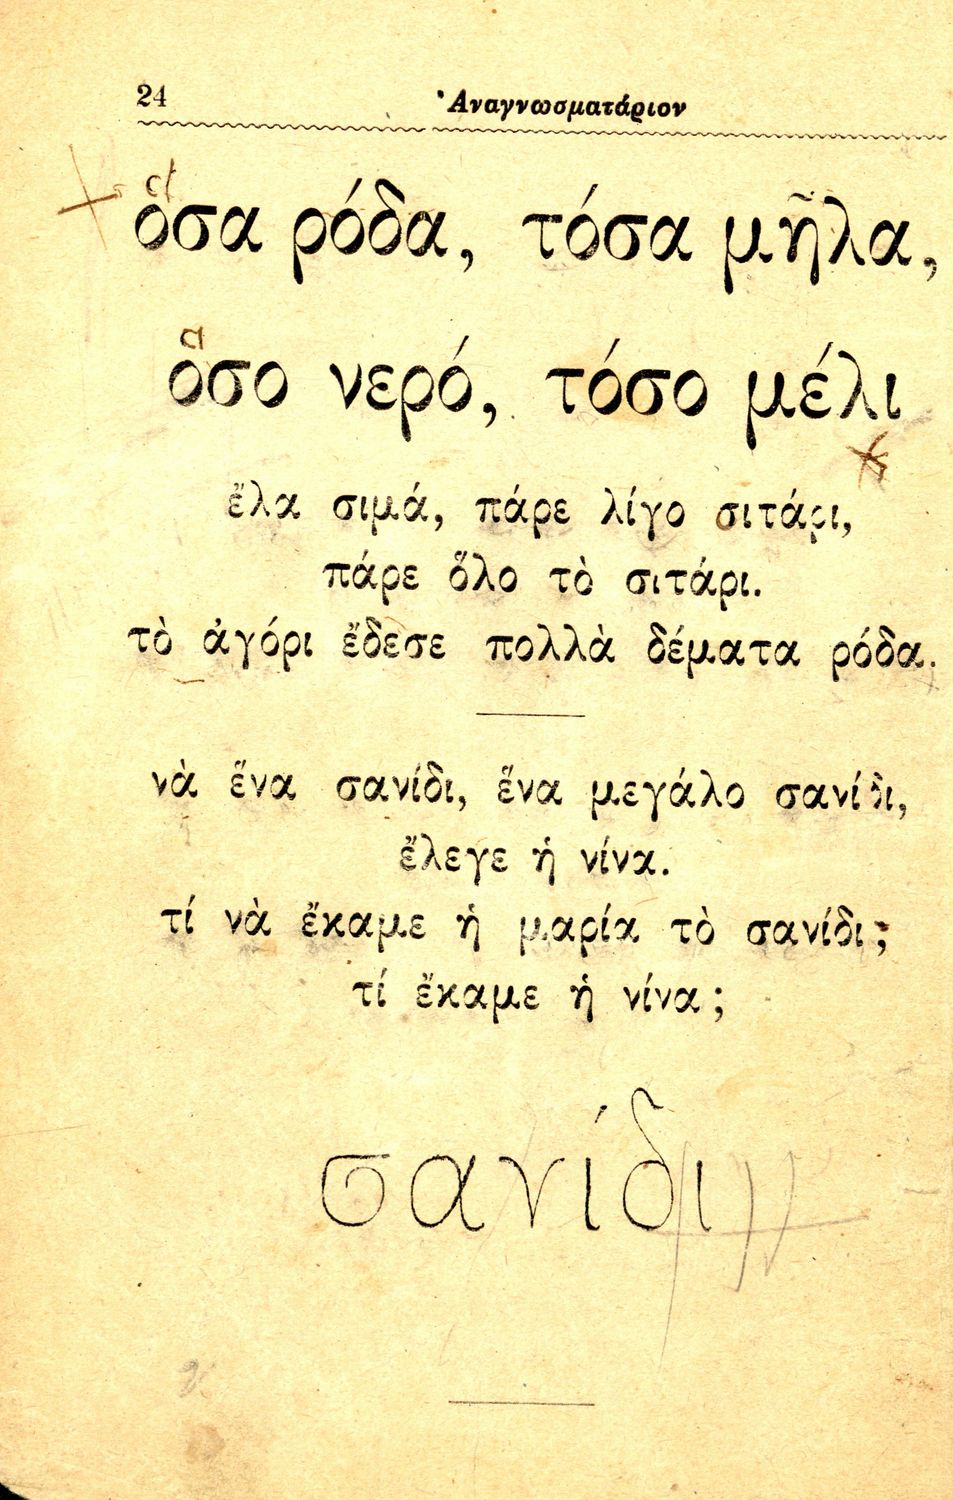 24 Ἀναγνωσματάριον
ὅσα ρόδα, τόσα μῆλα,
ὅσο νερό, τόσο μέλι
ἔλα σιμά, πάρε λίγο σιτάρι,
πάρε ὅλο τὸ σιτάρι.
τὸ ἀγόρι ἔδεσε πολλὰ δέματα ρόδα.
νὰ ἕνα σανίδι, ἕνα μεγάλο σανίδι,
ἔλεγε ἡ νίνα.
τί νὰ ἔκαμε ἡ μαρία τὸ σανίδι;
τί ἔκαμε ἡ νίνα;
σανίδι